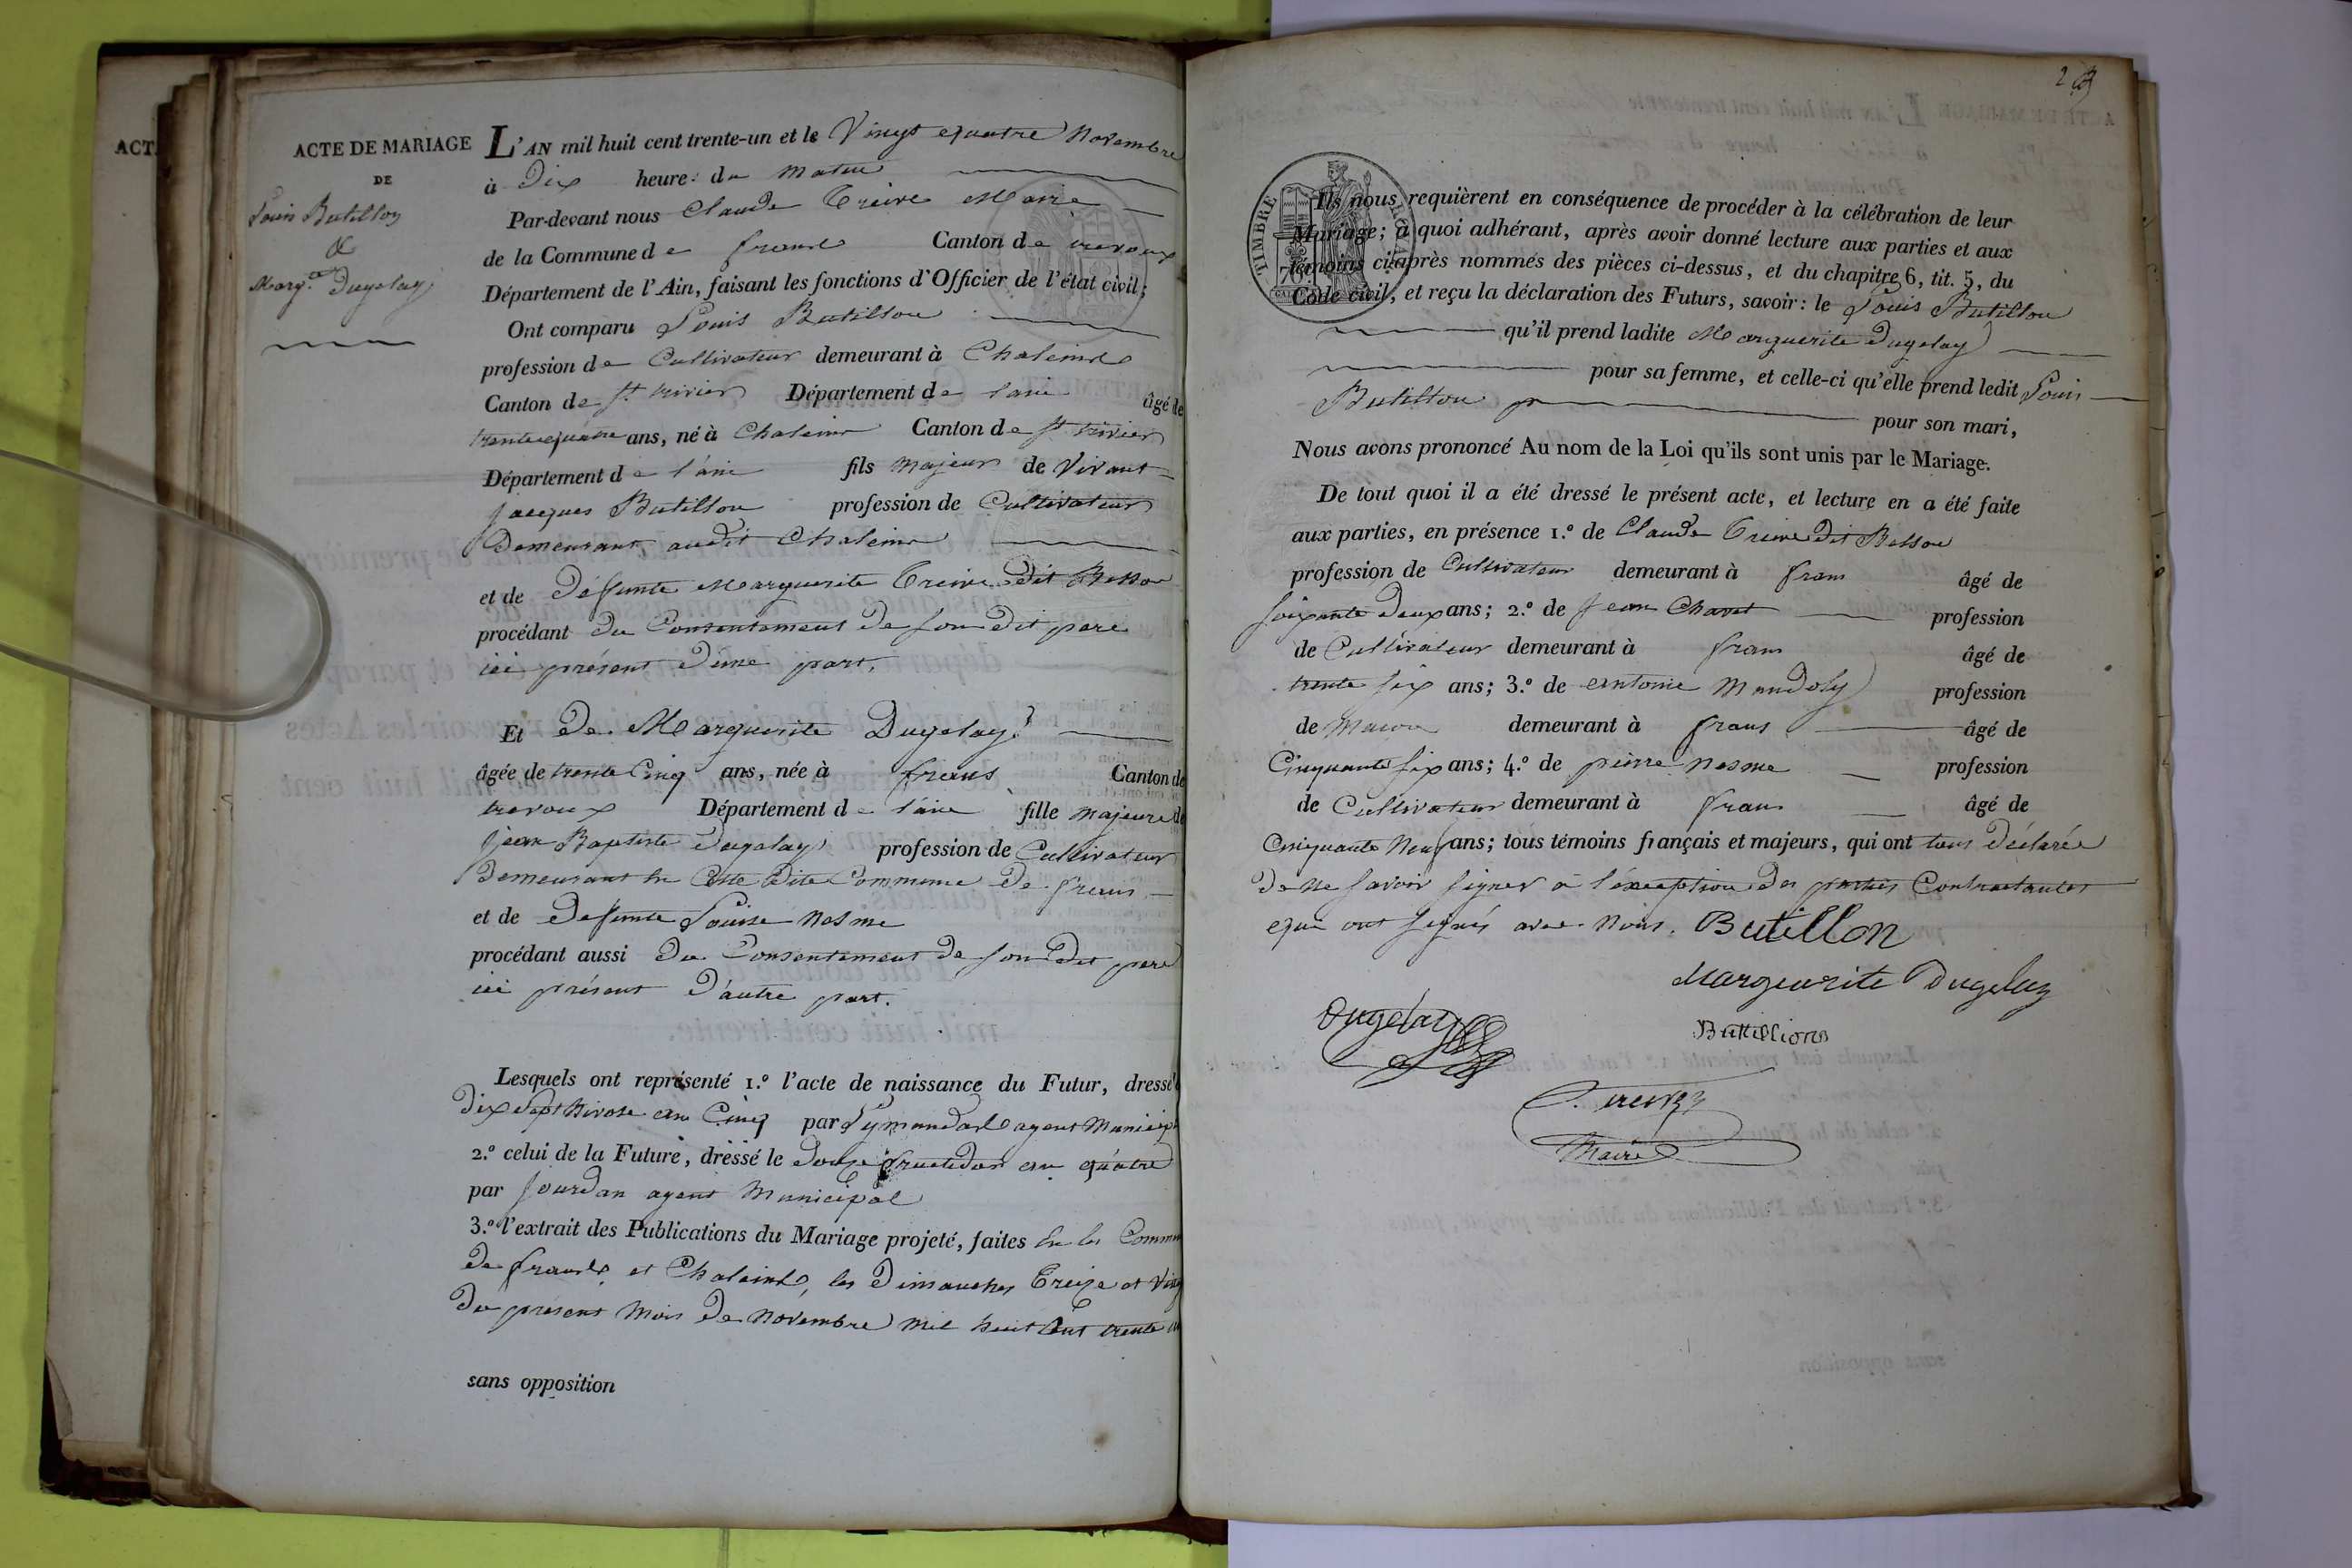 ACT
ACTE DE MARIAGE
DE
Louis Butillon
&
Marg.te Dugelay
L'AN mil huit cent trente-un et le Vingt equatre Novembre
à Dix heure: du matin
Par-devant nous Claude Treive Maire
de la Commune de frans Canton de trevoux
Département de l'Ain, faisant les fonctions d'Officier de l'état civil;
Ont comparu Louis Butillon
profession de Cultivateur demeurant à Chaleins
Canton de St trivier Département de l'ain âgé de
trente equatre ans, né à Chaleins Canton de St trivier
Département de l'ain fils majeur de Vivant
jacques Butillon profession de Cultivateur
Demeurant audit Chaleins
et de Défunte Marguerite Treive dit Besson
procédant du Consentement de son dit pere
ici présent d'une part.
Et De Marguerite Dugelay
âgée de trente Cinq ans, née à frans Canton de
trevoux Département de l'ain fille majeure de
jean Baptiste Dugelay profession de Cultivateur
Demeurant en Cette dite Commune de frans
et de Defunte Louise Nesme
procédant aussi du Consentement de son dit pere
ici présent d'autre part.
Lesquels ont représenté 1.º l'acte de naissance du Futur, dressé
Dix Sept Nivose an Cinq par agent Municip
2.º celui de la Future, dressé le Douze fructidor an quatre
par Jourdan agent Municipal
3.º l'extrait des Publications du Mariage projeté, faites en les Commu
de frans et Chaleins, les Dimanches Treize et Vingt
Du présent Mois de Novembre mil huit Cent trente un
sans opposition
TIMBRE ROYAL
Ils nous requièrent en conséquence de procéder à la célébration de leur
Mariage; à quoi adhérant, après avoir donné lecture aux parties et aux
témoins ci-après nommés des pièces ci-dessus, et du chapitre 6, tit. 5, du
Code civil, et reçu la déclaration des Futurs, savoir: le Louis Butillon
qu'il prend ladite Marguerite Dugelay
pour sa femme, et celle-ci qu'elle prend ledit Louis
Butillon pour son mari,
Nous avons prononcé Au nom de la Loi qu'ils sont unis par le Mariage.
De tout quoi il a été dressé le présent acte, et lecture en a été faite
aux parties, en présence 1.º de Claude Treive dit Besson
profession de Cultivateur demeurant à frans âgé de
soixante Deux ans; 2.º de Jean Chavet profession
de Cultivateur demeurant à frans âgé de
trente six ans; 3.º de antoine Mandoly profession
de Macon demeurant à frans âgé de
Cinquante six ans; 4.º de pierre Nesme profession
de Cultivateur demeurant à frans âgé de
Cinquante Neuf ans; tous témoins français et majeurs, qui ont tous Déclarée
de Ne savoir signer à l'éxception des parties Contractantes
equi ont signés avec Nous. Butillon
Marguerite Dugelay
Dugelay
Butillions
C. treive
Maire